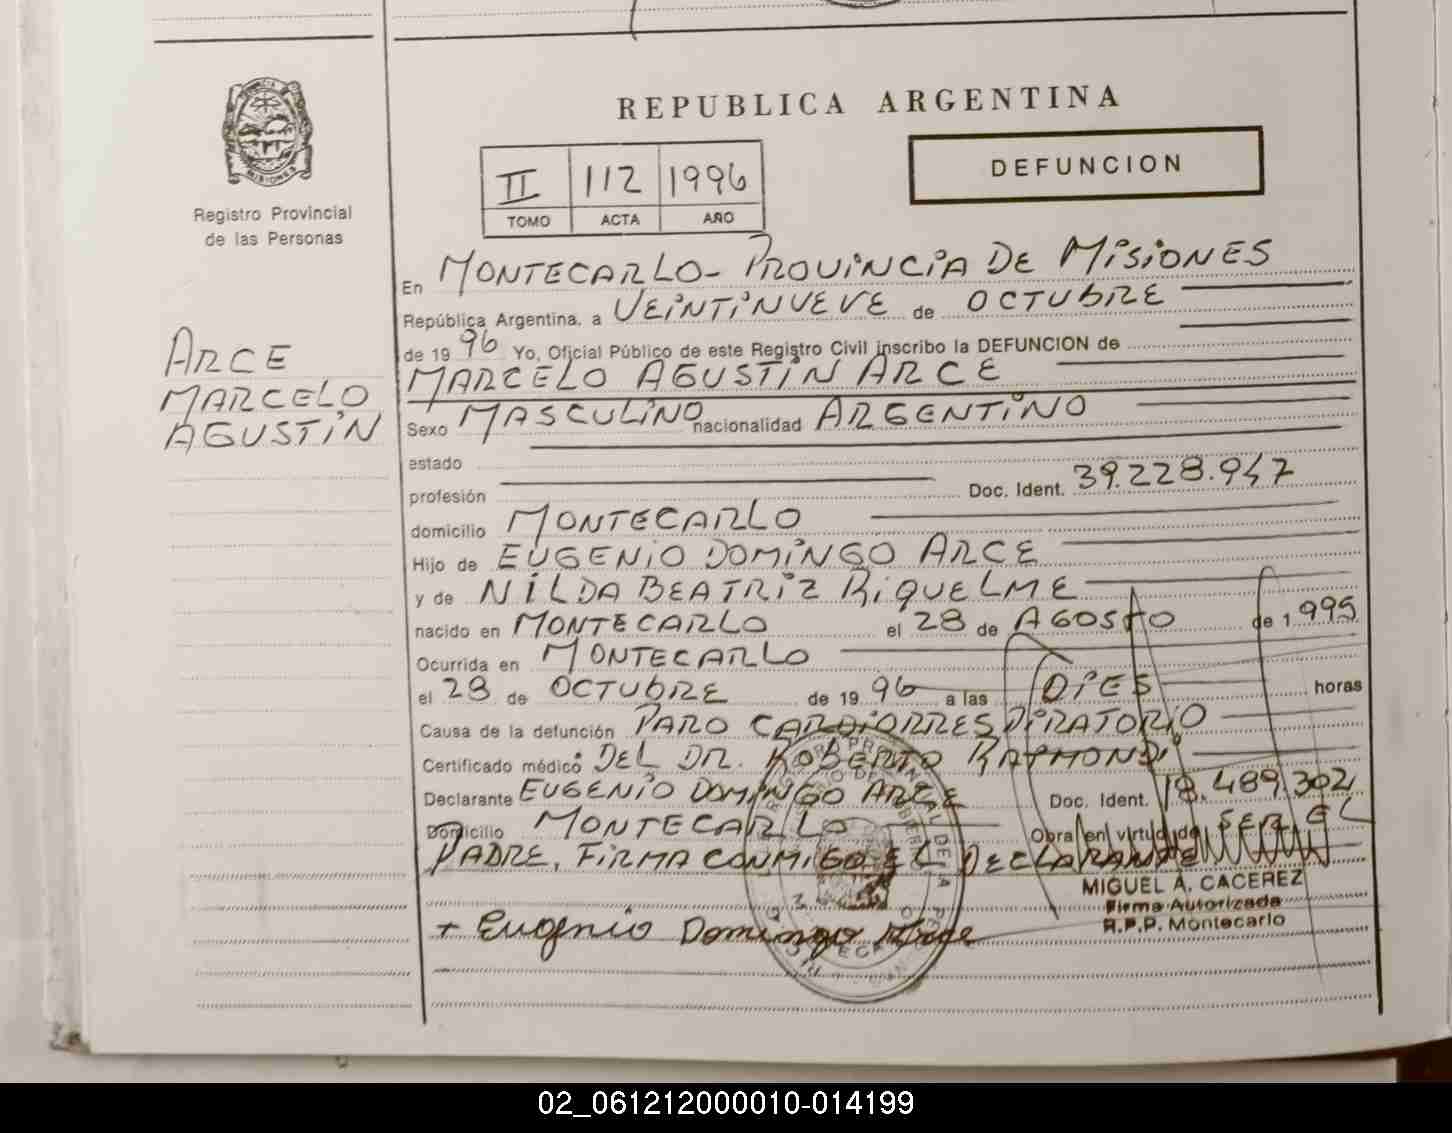 REPUBLICA ARGENTINA
II 112 1996
TOMO ACTA AÑO
DEFUNCION
PROVINCIA DE MISIONES
Registro Provincial
de las Personas
ARCE
MARCELO
AGUSTÍN
En MONTECARLO - PROVINCIA DE MISIONES
República Argentina, a VEINTINUEVE de OCTUBRE
de 19 96 Yo, Oficial Público de este Registro Civil inscribo la DEFUNCION de
MARCELO AGUSTÍN ARCE
Sexo MASCULINO nacionalidad ARGENTINO
estado
profesión Doc. Ident. 39.228.947
domicilio MONTECARLO
Hijo de EUGENIO DOMINGO ARCE
y de NILDA BEATRIZ RIQUELME
nacido en MONTECARLO el 28 de AGOSTO de 1.995
Ocurrida en MONTECARLO
el 28 de OCTUBRE de 19 96 a las DIES horas
Causa de la defunción PARO CARDIORRESPIRATORIO
Certificado médico DEL DR. ROBERTO RAYMONDI
Declarante EUGENIO DOMINGO ARCE Doc. Ident. 18.489.302
Domicilio MONTECARLO Obra en virtud de SER EL
PADRE, FIRMA CONMIGO EL DECLARANTE
MIGUEL A. CACEREZ
Firma Autorizada
R.P.P. Montecarlo
+ Eugenio Domingo Arce
02_061212000010-014199